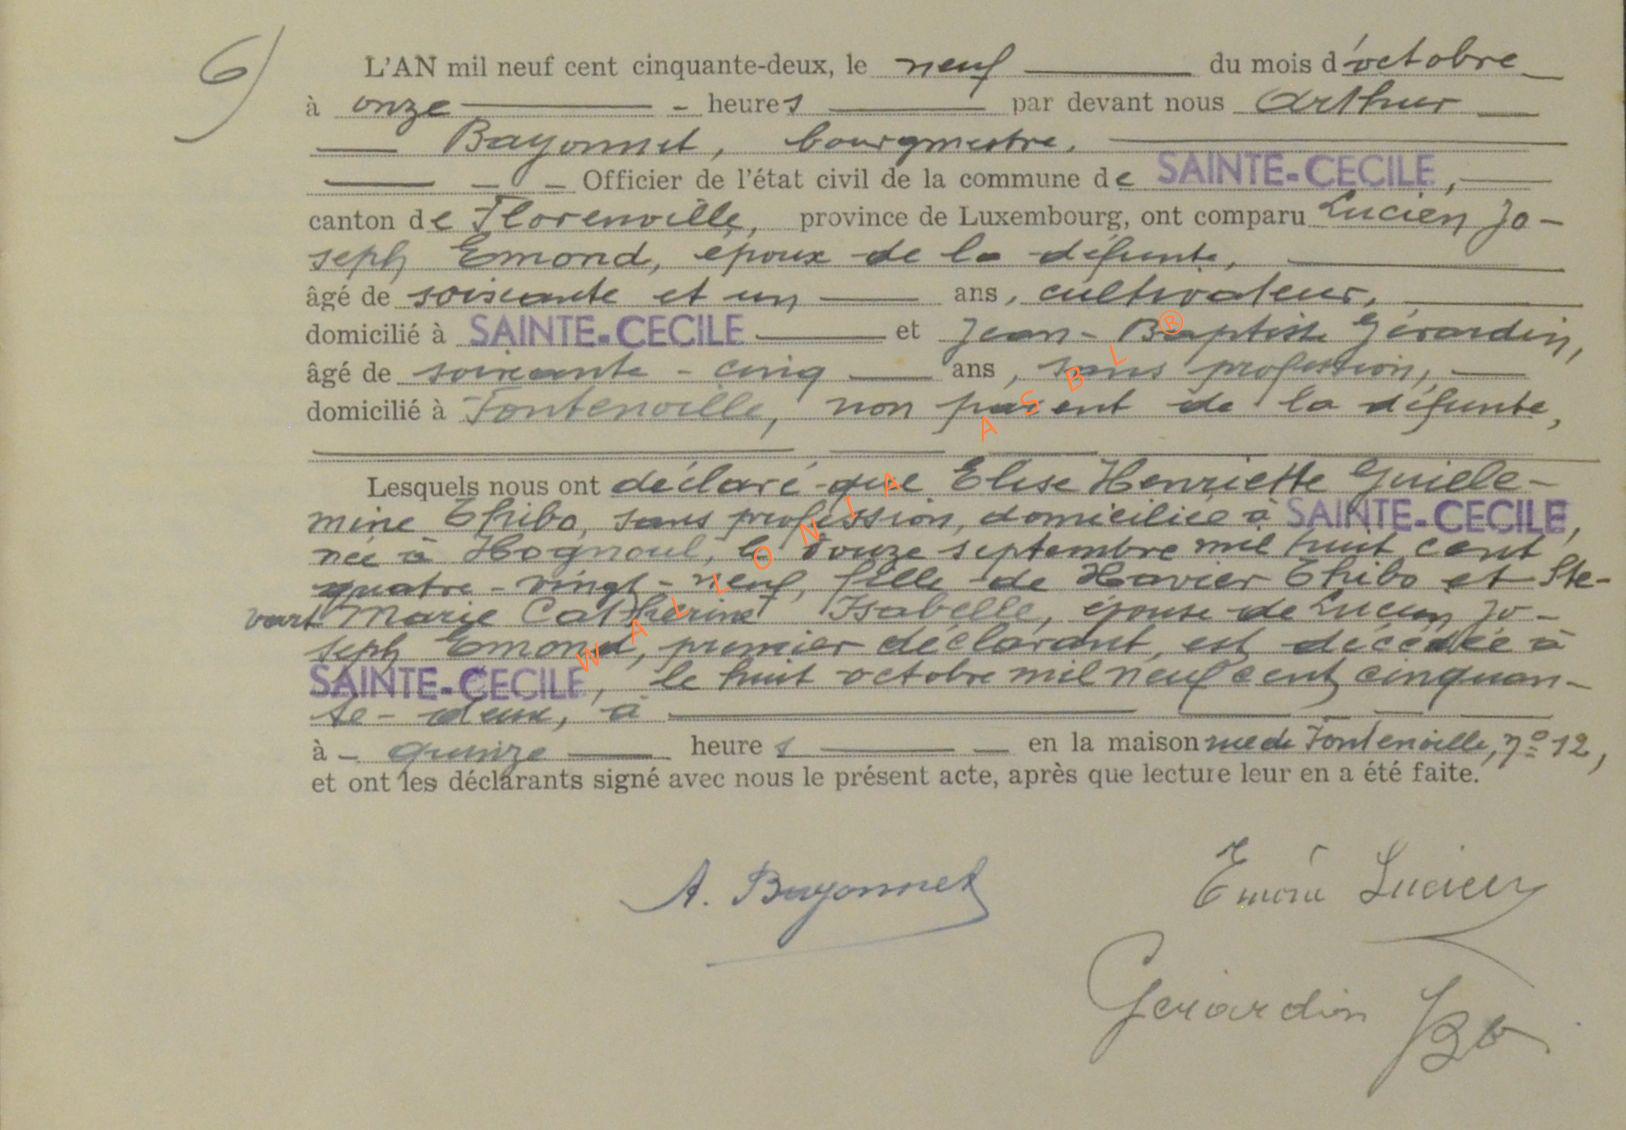 6)
L'AN mil neuf cent cinquante-deux, le neuf du mois d'octobre
à onze heures par devant nous Arthur
Bayonnet, bourgmestre,
Officier de l'état civil de la commune de SAINTE-CECILE,
canton de Florenville, province de Luxembourg, ont comparu Lucien Jo-
seph Emond, époux de la défunte,
âgé de soixante et un ans, cultivateur,
domicilié à SAINTE-CECILE et Jean-Baptiste Gérardin,
âgé de soixante-cinq ans, sans profession,
domicilié à Fontenoille, non parent de la défunte,
Lesquels nous ont déclaré que Elise Henriette Guille-
mine Thibo, sans profession, domiciliée à SAINTE-CECILE,
née à Hognoul, le douze septembre mil huit cent
quatre-vingt-neuf, fille de Havier Thibo et Ste-
vart Marie Catherine Isabelle, épouse de Lucien Jo-
seph Emond, premier déclarant, est décédée à
SAINTE-CECILE, le huit octobre mil neuf cent cinquan-
te-deux, à
à quinze heures en la maison rue de Fontenoille, nº 12,
et ont les déclarants signé avec nous le présent acte, après que lecture leur en a été faite.
A. Bayonnet
Emond Lucien
Gerardin JB
WALLONIA ASBL ®